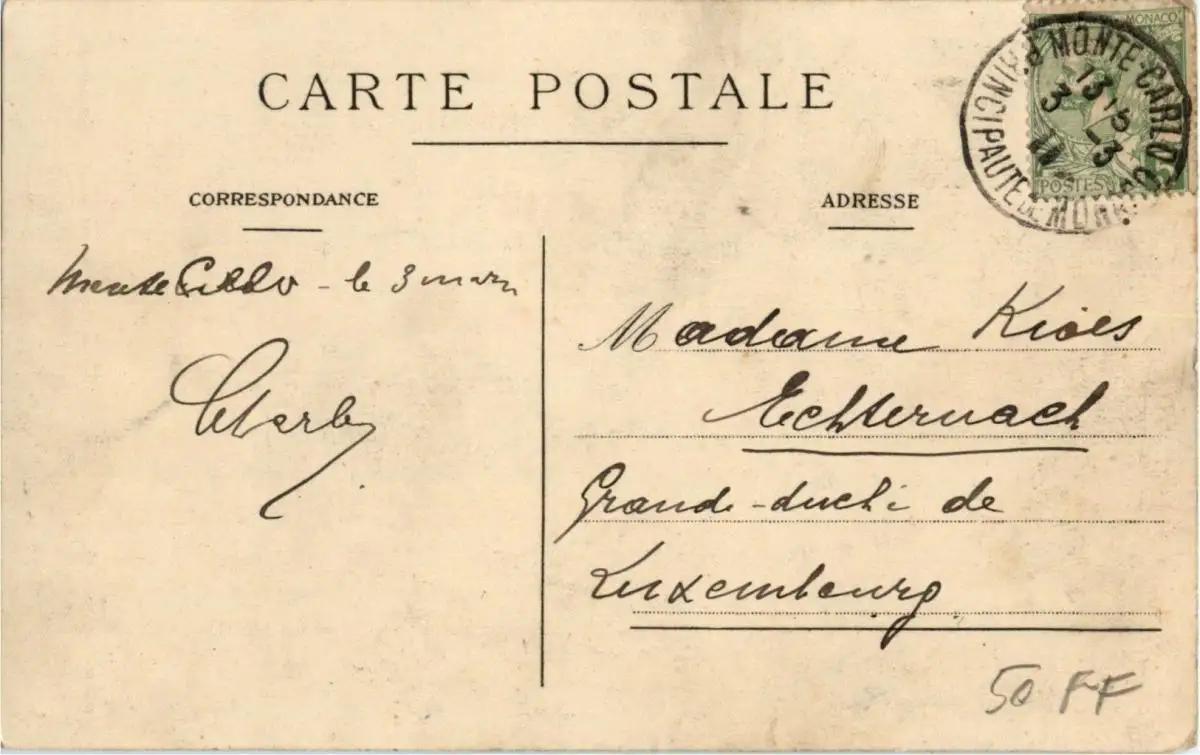 CARTE POSTALE
CORRESPONDANCE
ADRESSE
MONACO
POSTES
MONTE-CARLO
PRINCIPAUTE DE MONACO
13 15
3 -3
11
Monte Carlo - le 3 mars
Madame Kioes
Echternach
Grand-duché de
Luxembourg
50 FF